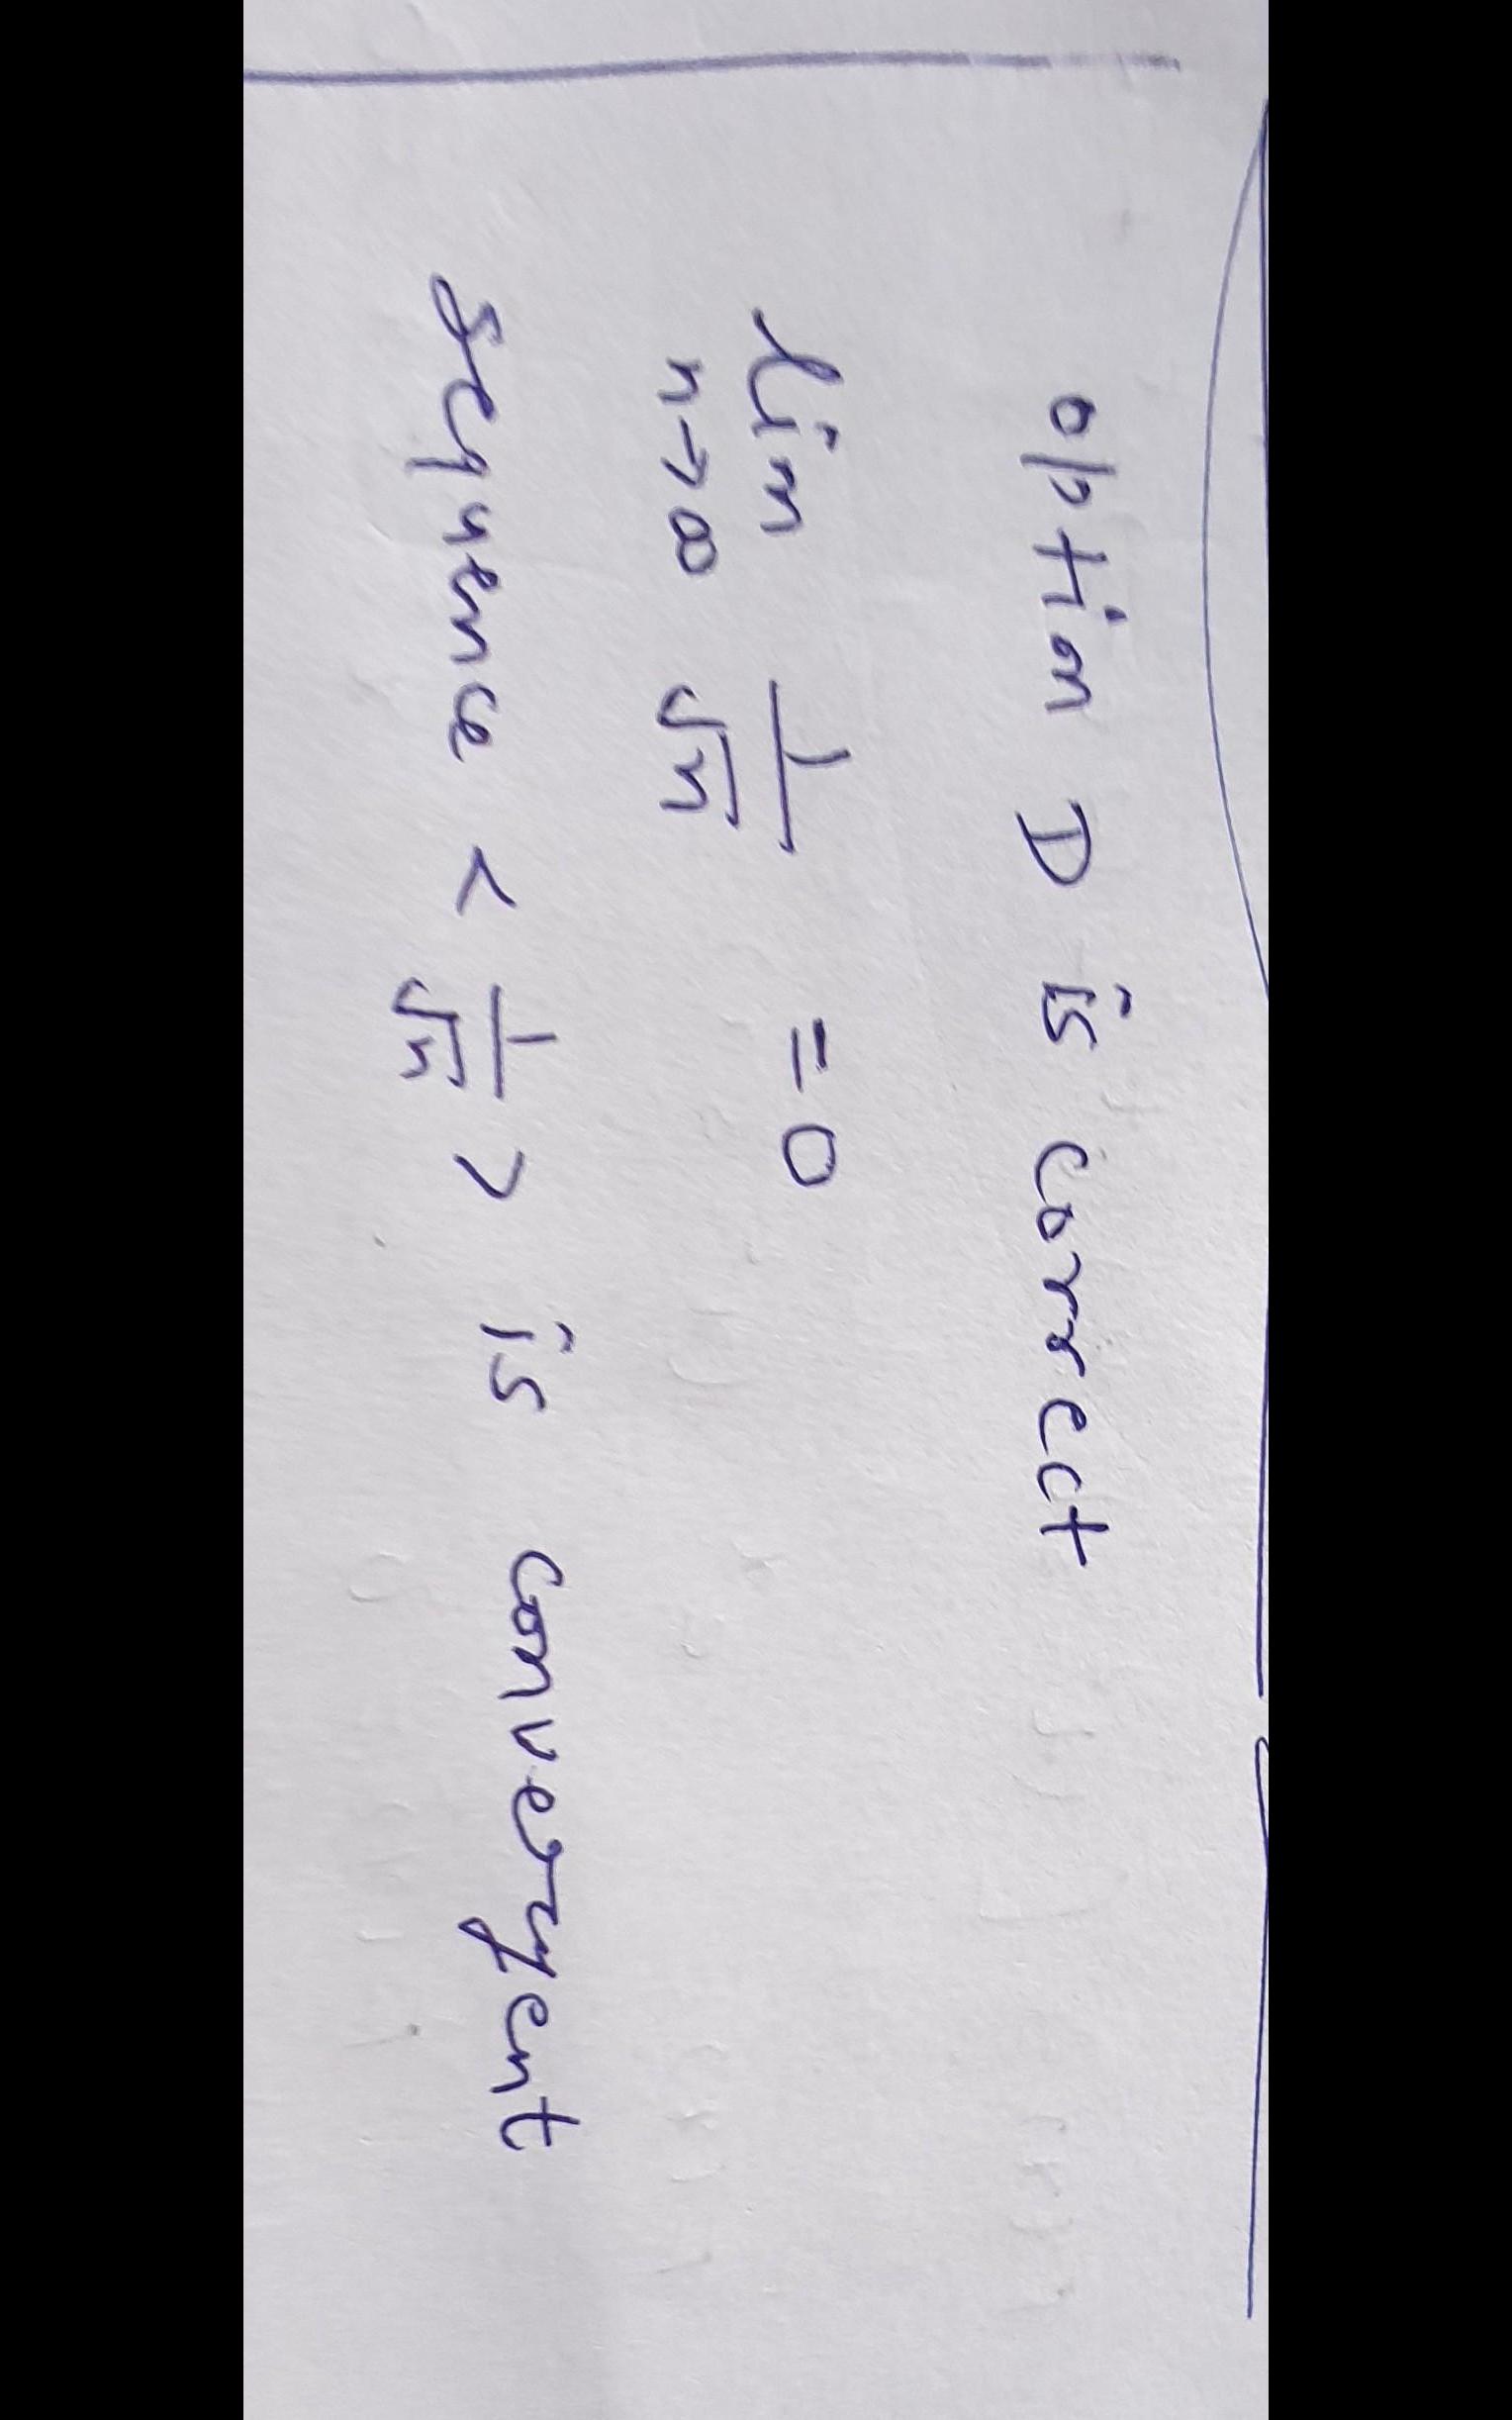 option D is correct
lim 1/√n = 0
n→∞
sequence < 1/√n > is convergent